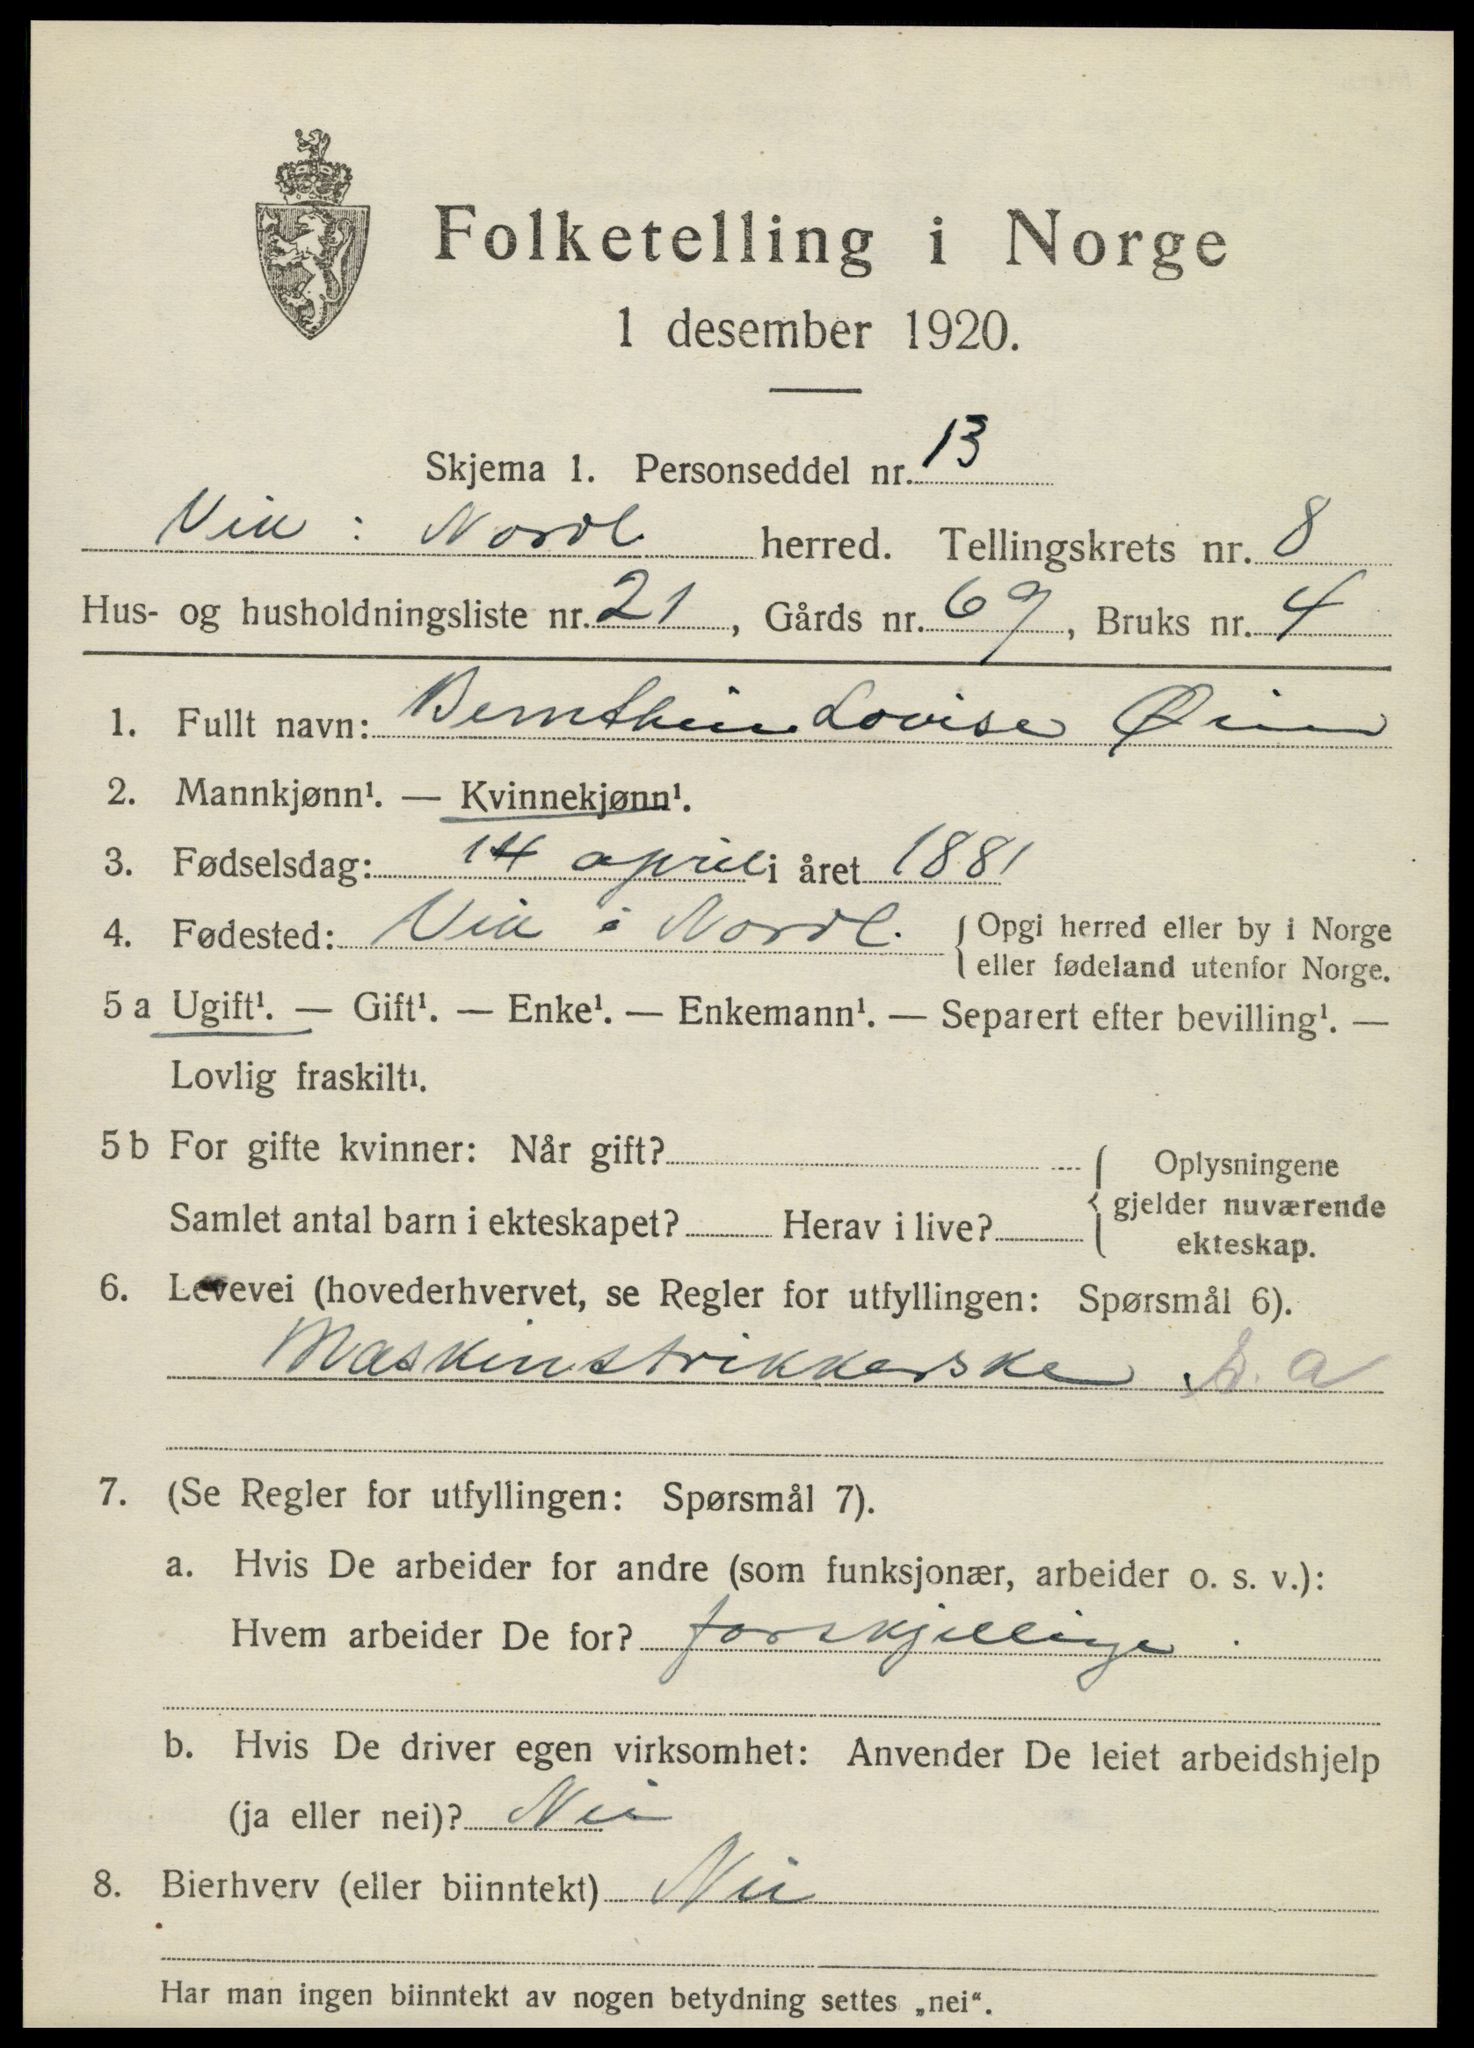 Folketelling i Norge
1 desember 1920.
Skjema 1. Personseddel nr. 13
Vik i Nordl. herred. Tellingskrets nr. 8
Hus- og husholdningsliste nr. 21, Gårds nr. 69, Bruks nr. 4
1. Fullt navn: Bernthine Lovise Øien
2. Mannkjønn¹. — Kvinnekjønn¹.
3. Fødselsdag: 14 april i året 1881
4. Fødested: Vik i Nordl. { Opgi herred eller by i Norge
eller fødeland utenfor Norge.
5 a Ugift¹. — Gift¹. — Enke¹. — Enkemann¹. — Separert efter bevilling¹. —
Lovlig fraskilt¹.
5 b For gifte kvinner: Når gift?
Samlet antal barn i ekteskapet? Herav i live?
Oplysningene
gjelder nuværende
ekteskap.
6. Levevei (hovederhvervet, se Regler for utfyllingen: Spørsmål 6).
Maskinstrikkerske a
7. (Se Regler for utfyllingen: Spørsmål 7).
a. Hvis De arbeider for andre (som funksjonær, arbeider o. s. v.):
Hvem arbeider De for? forskjellige.
b. Hvis De driver egen virksomhet: Anvender De leiet arbeidshjelp
(ja eller nei)? Nei
8. Bierhverv (eller biinntekt) Nei
Har man ingen biinntekt av nogen betydning settes „nei“.